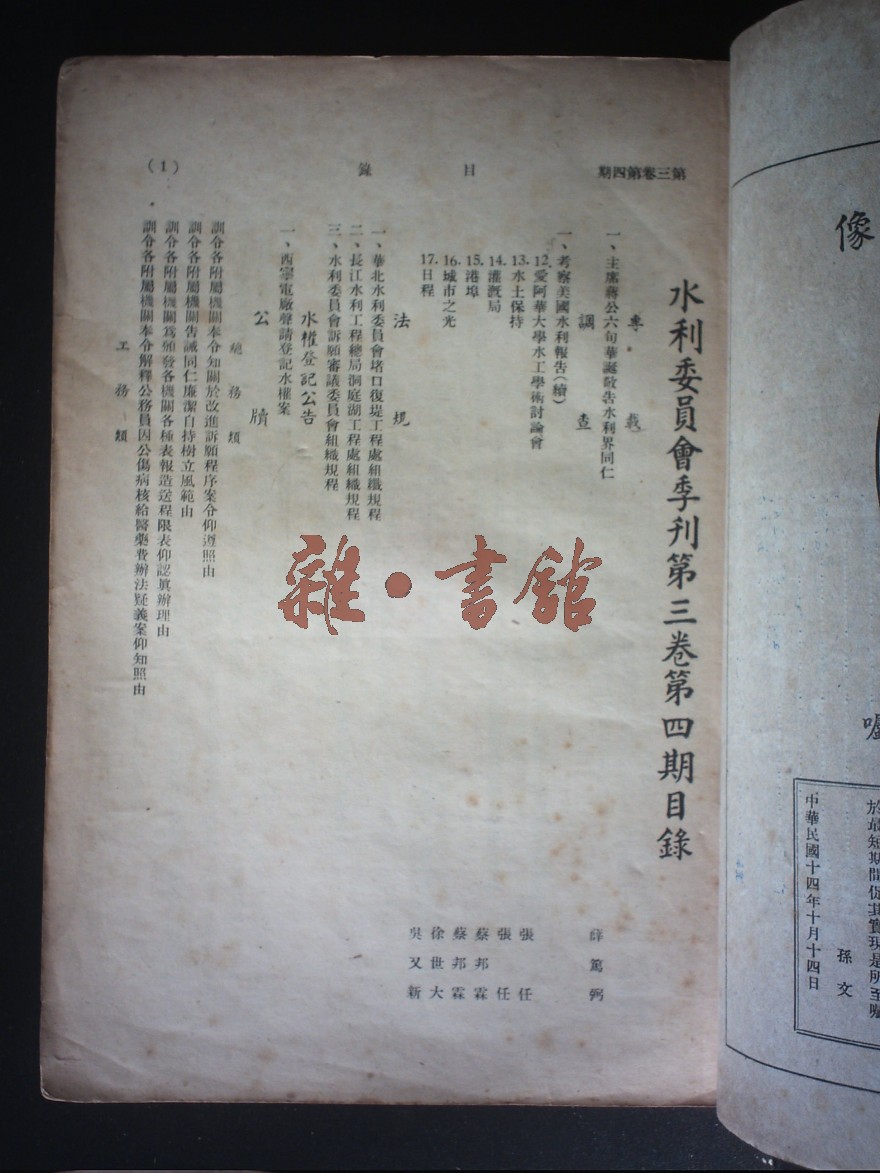 第三卷第四期
目錄
(1)
水利委員會季刊第三卷第四期目錄
專載
一、主席蔣公六旬華誕敬告水利界同仁
薛篤弼
調查
一、考察美國水利報告(續)
12.愛阿華大學水工學術討論會
張任
13.水土保持
張任
14.灌漑局
蔡邦霖
15.港埠
蔡邦霖
16.城市之光
徐世大
17.日程
吳又新
法規
一、華北水利委員會堵口復堤工程處組織規程
二、長江水利工程總局洞庭湖工程處組織規程
三、水利委員會訴願審議委員會組織規程
水權登記公告
一、西寧電廠聲請登記水權案
公牘
總務類
訓令各附屬機關奉令知關於改進訴願程序案令仰遵照由
訓令各附屬機關告誡同仁廉潔自持樹立風範由
訓令各附屬機關爲頒發各機關各種表報造送程限表仰認眞辦理由
訓令各附屬機關奉令解釋公務員因公傷病核給醫藥費辦法疑義案仰知照由
工務類
像
囑
於最短期間促其實現是所至囑
孫文
中華民國十四年十月十四日
雜·書館